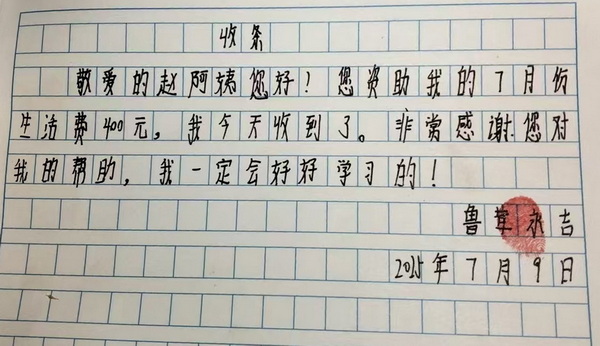 收条
敬爱的赵阿姨您好！您资助我的7月份
生活费400元，我今天收到了。非常感谢您对
我的帮助，我一定会好好学习的！
鲁茸永吉
2015年7月9日